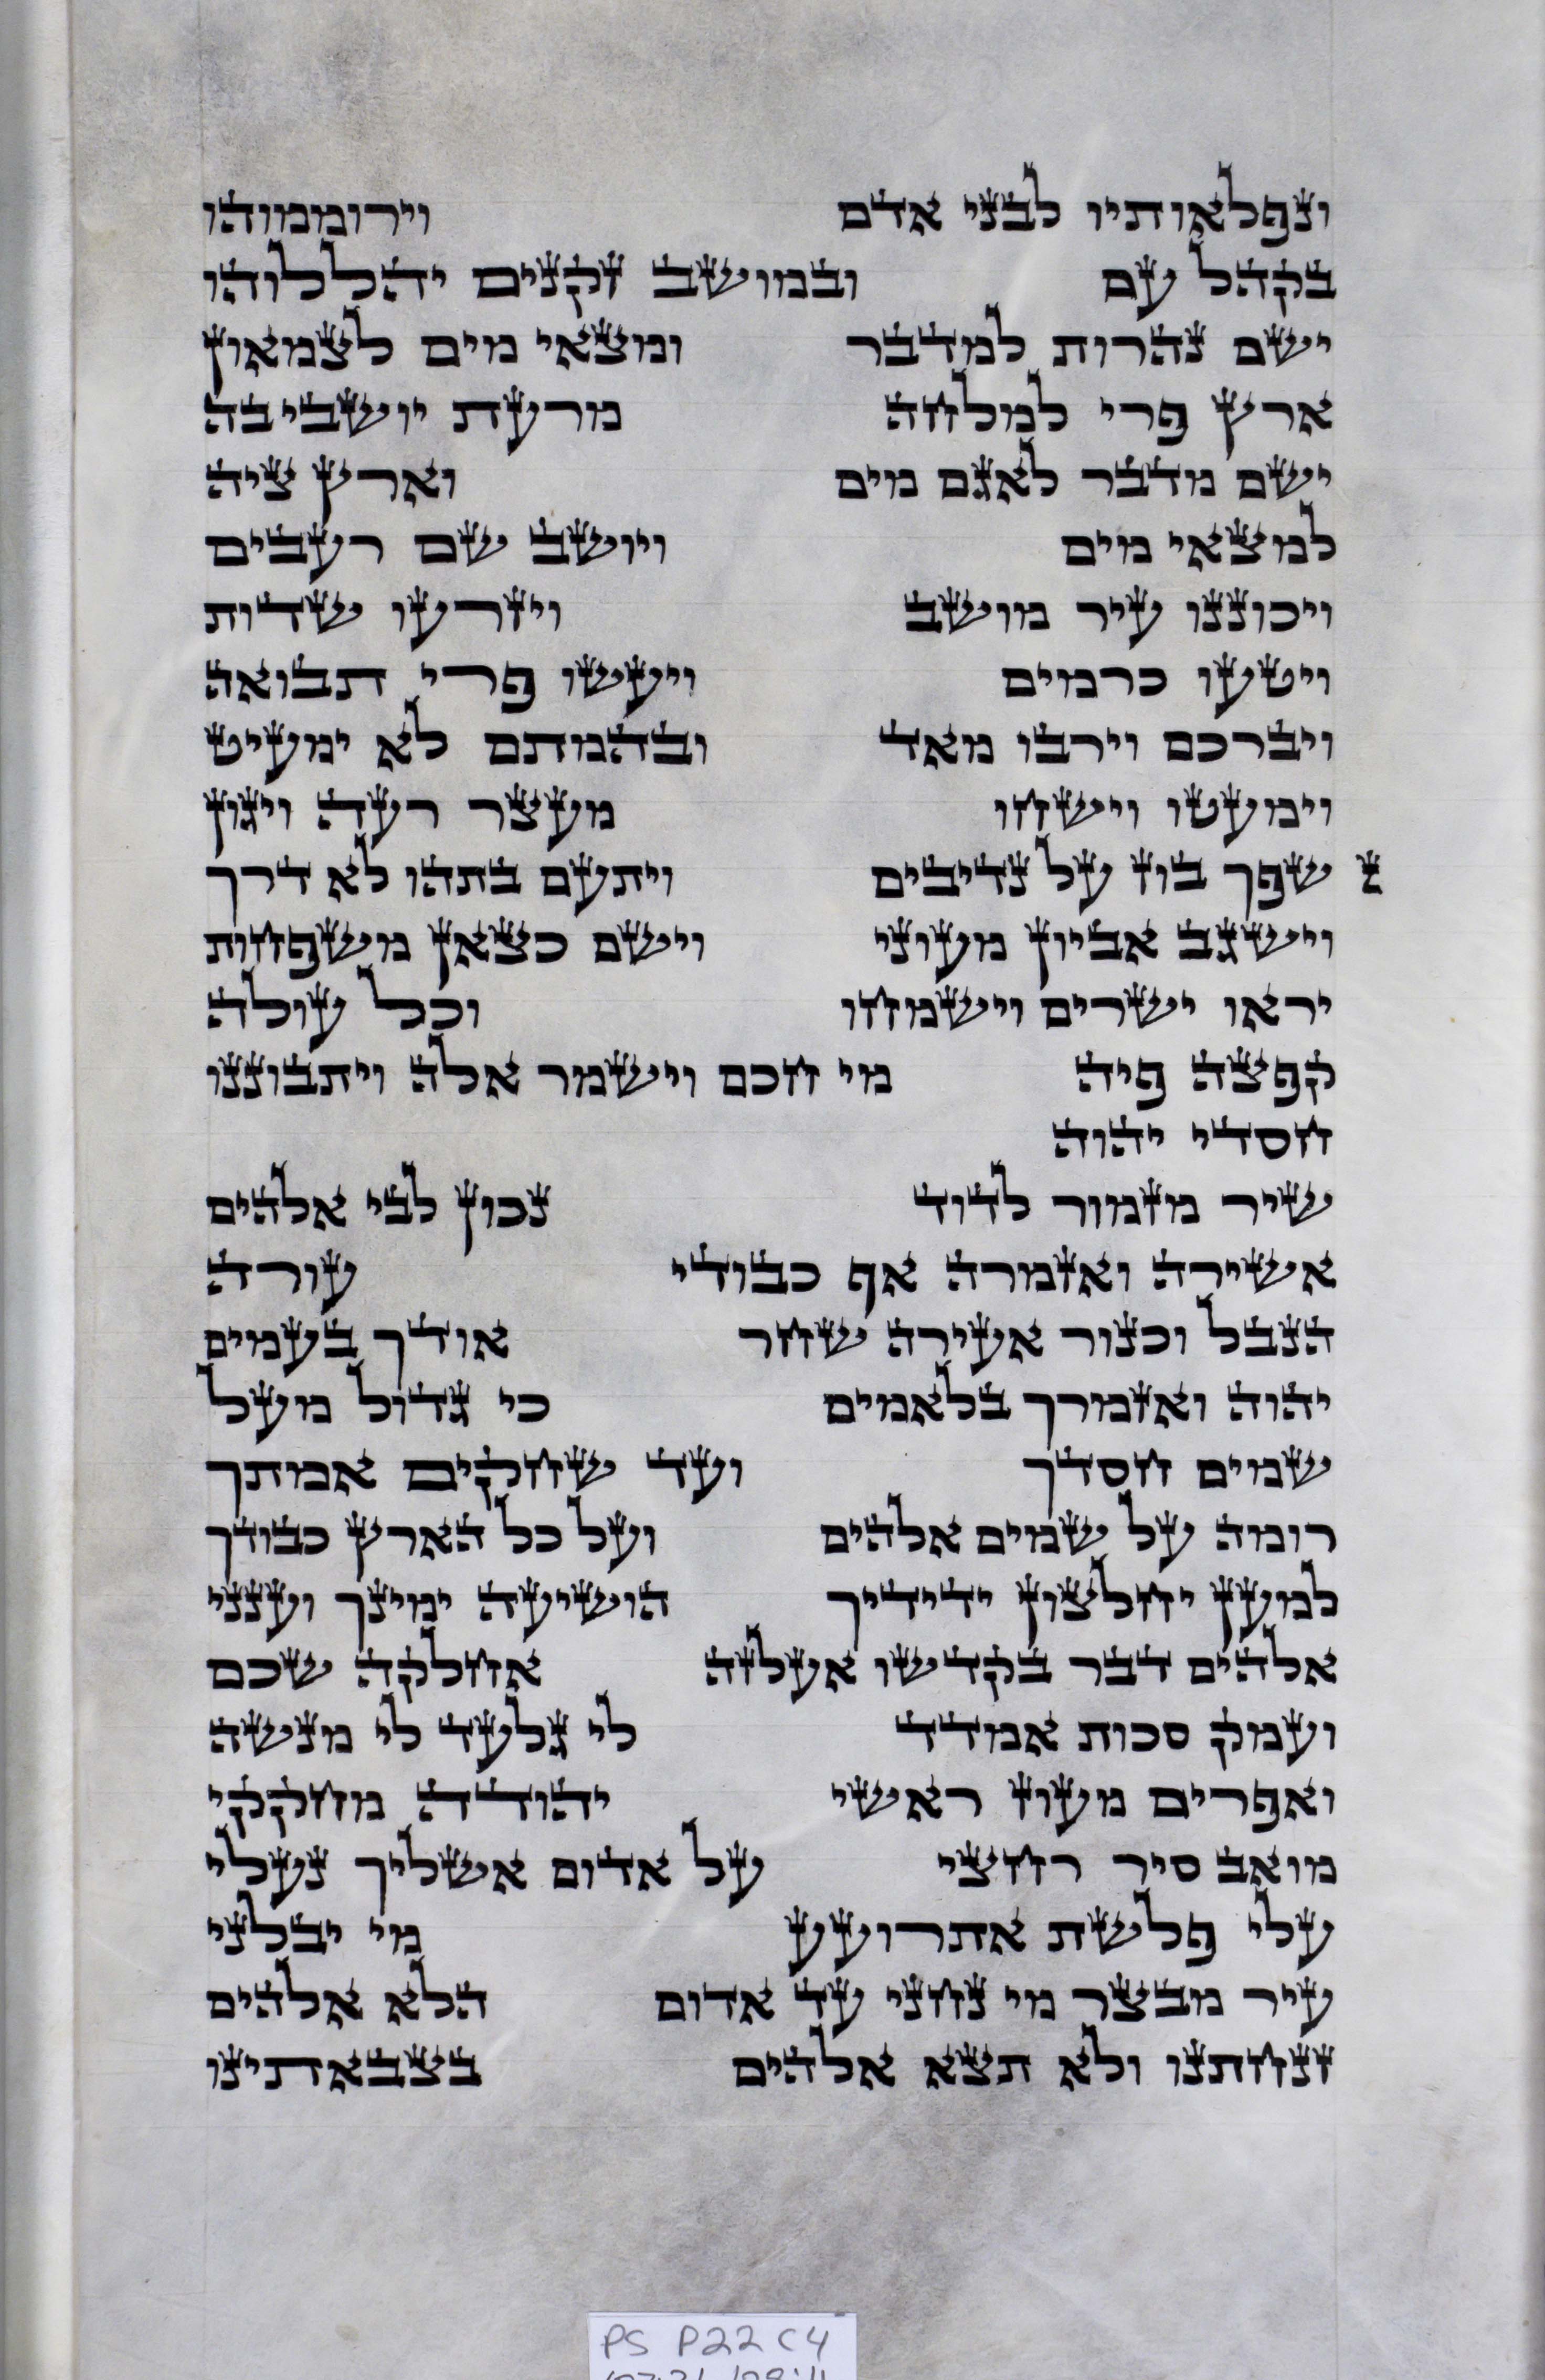 ונפלאותיו לבני אדם וירוממוהו
בקהל עם ובמושב זקנים יהללוהו
ישם נהרות למדבר ומצאי מים לצמאון
ארץ פרי למלחה מרעת יושבי בה
ישם מדבר לאגם מים וארץ ציה
למצאי מים ויושב שם רעבים
ויכוננו עיר מושב ויזרעו שדות
ויטעו כרמים ויעשו פרי תבואה
ויברכם וירבו מאד ובהמתם לא ימעיט
וימעטו וישחו מעצר רעה ויגון
׆ שפך בוז על נדיבים ויתעם בתהו לא דרך
וישגב אביון מעוני וישם כצאן משפחות
יראו ישרים וישמחו וכל עולה
קפצה פיה מי חכם וישמר אלה ויתבוננו
חסדי יהוה
שיר מזמור לדוד נכון לבי אלהים
אשירה ואזמרה אף כבודי עורה
הנבל וכנור אעירה שחר אודך בעמים
יהוה ואזמרך בלאמים כי גדול מעל
שמים חסדך ועד שחקים אמתך
רומה על שמים אלהים ועל כל הארץ כבודך
למען יחלצון ידידיך הושיעה ימינך וענני
אלהים דבר בקדשו אעלזה אחלקה שכם
ועמק סכות אמדד לי גלעד לי מנשה
ואפרים מעוז ראשי יהודה מחקקי
מואב סיר רחצי על אדום אשליך נעלי
עלי פלשת אתרועע מי יבלני
עיר מבצר מי נחני עד אדום הלא אלהים
זנחתנו ולא תצא אלהים בצבאתינו
PS P22 C4